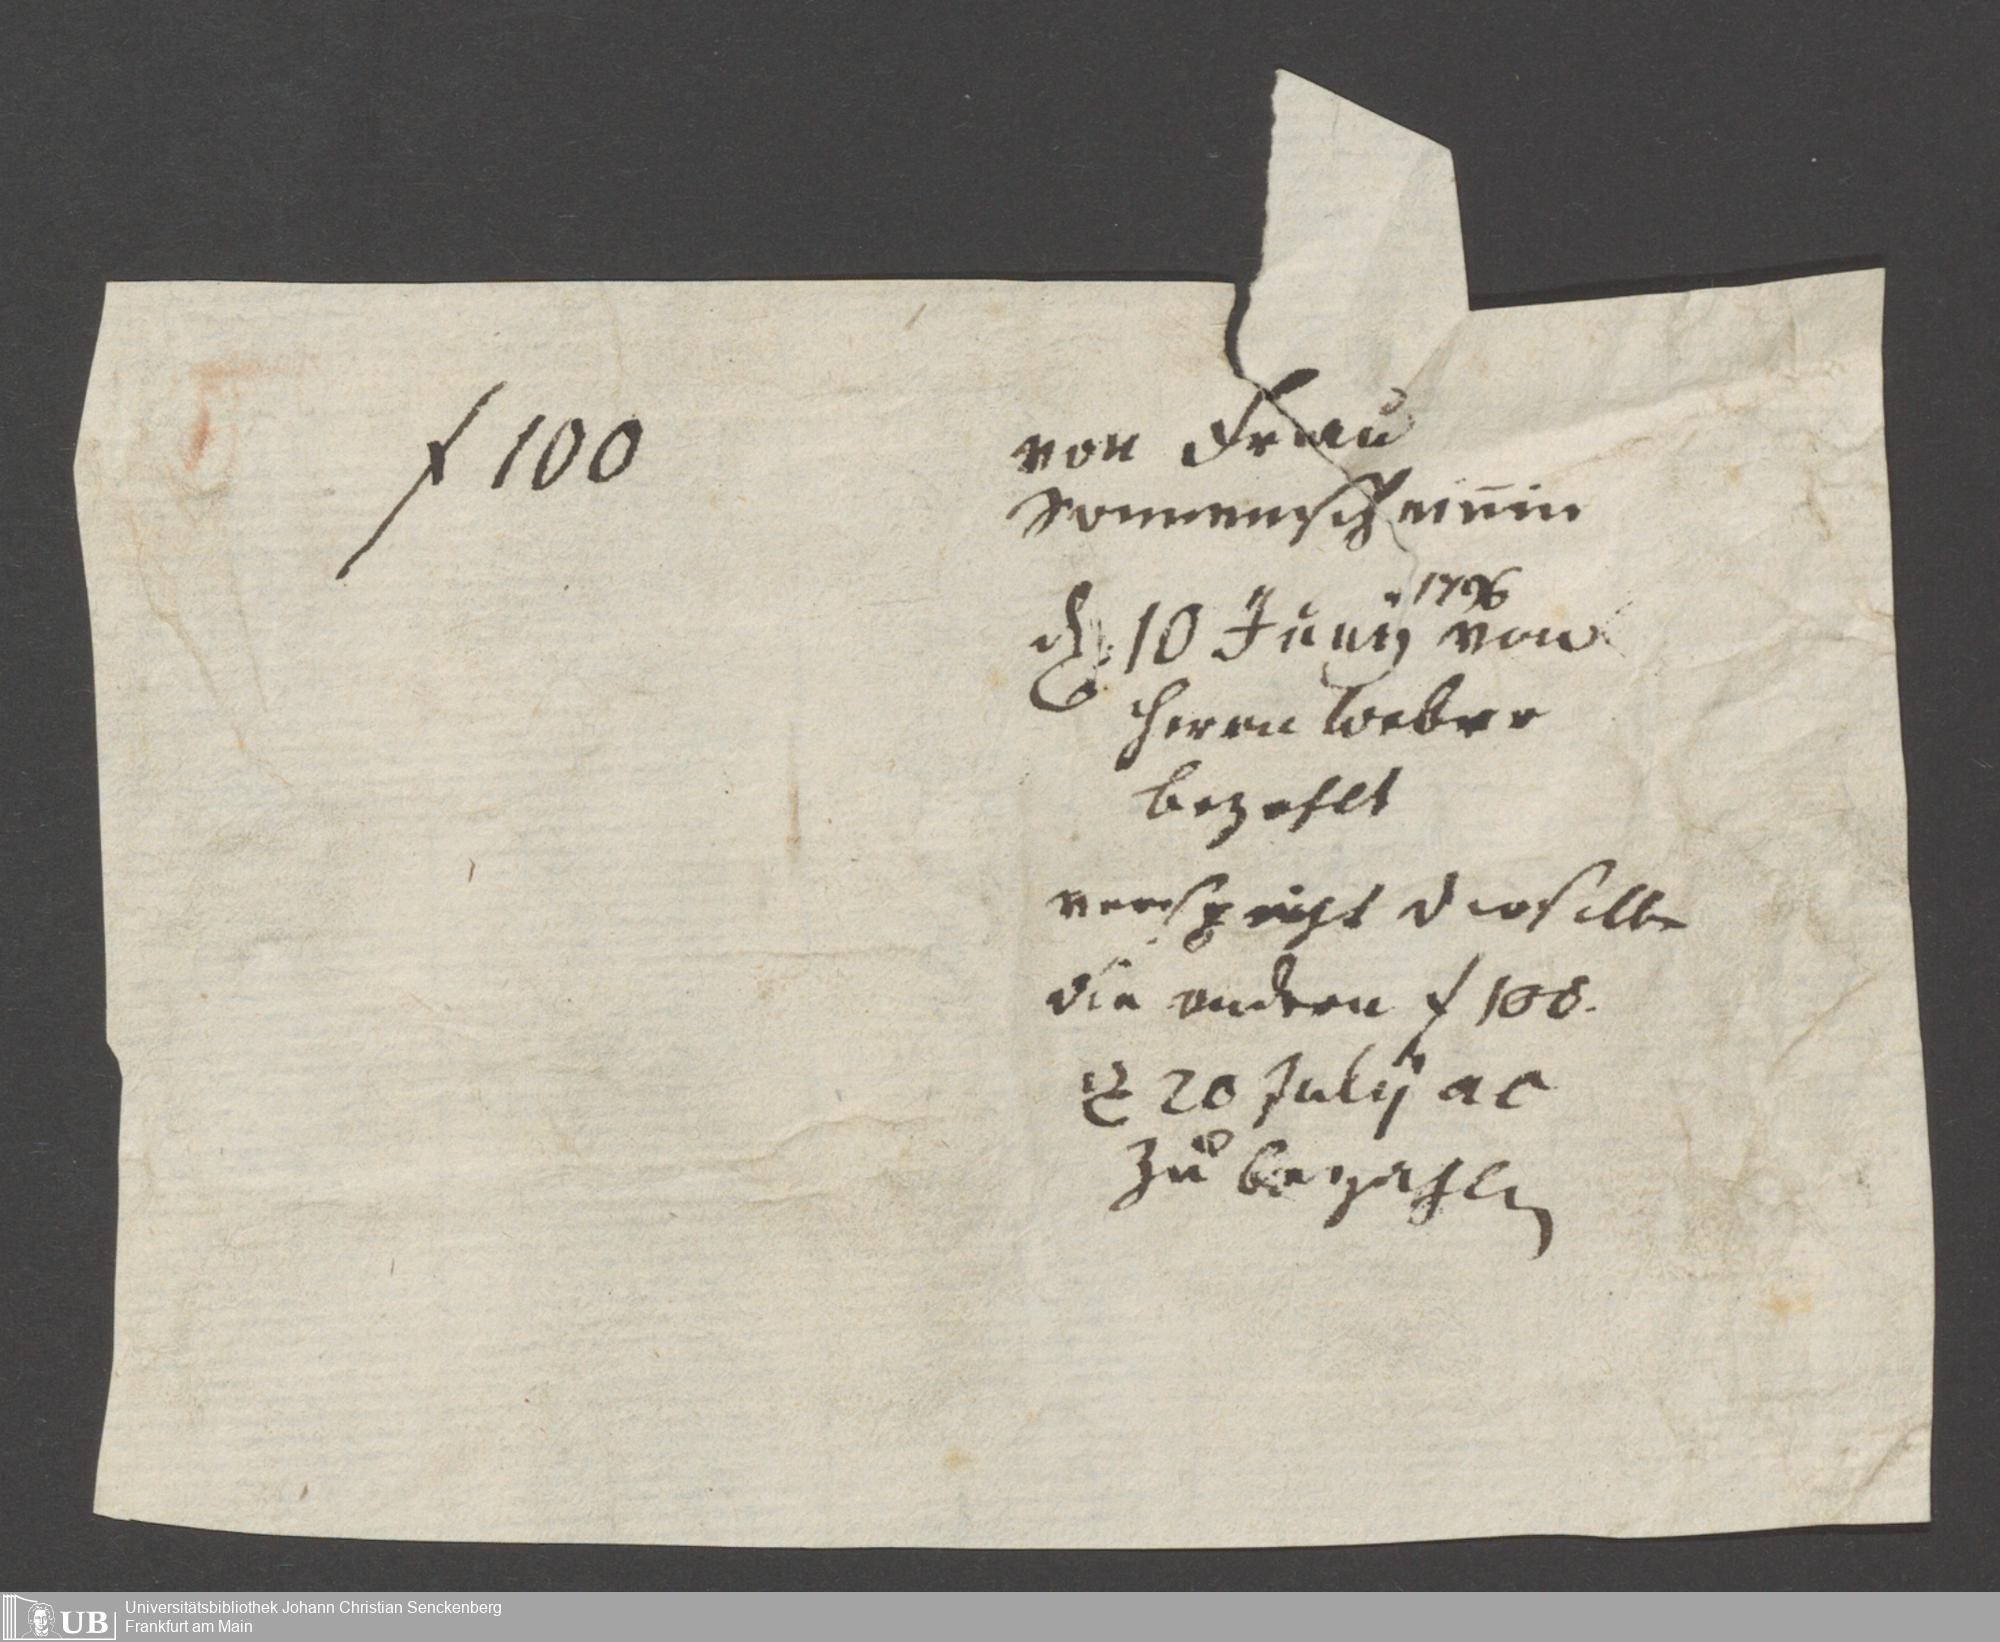 f 100
von Frau
Sonnenscheinin
d. 10 Juny 1796 von
Herrn Weber
bezahlt
verspricht dieselbe
die andern f 100.
20 July a c
zu bezahlen
UB
Universitätsbibliothek Johann Christian Senckenberg
Frankfurt am Main